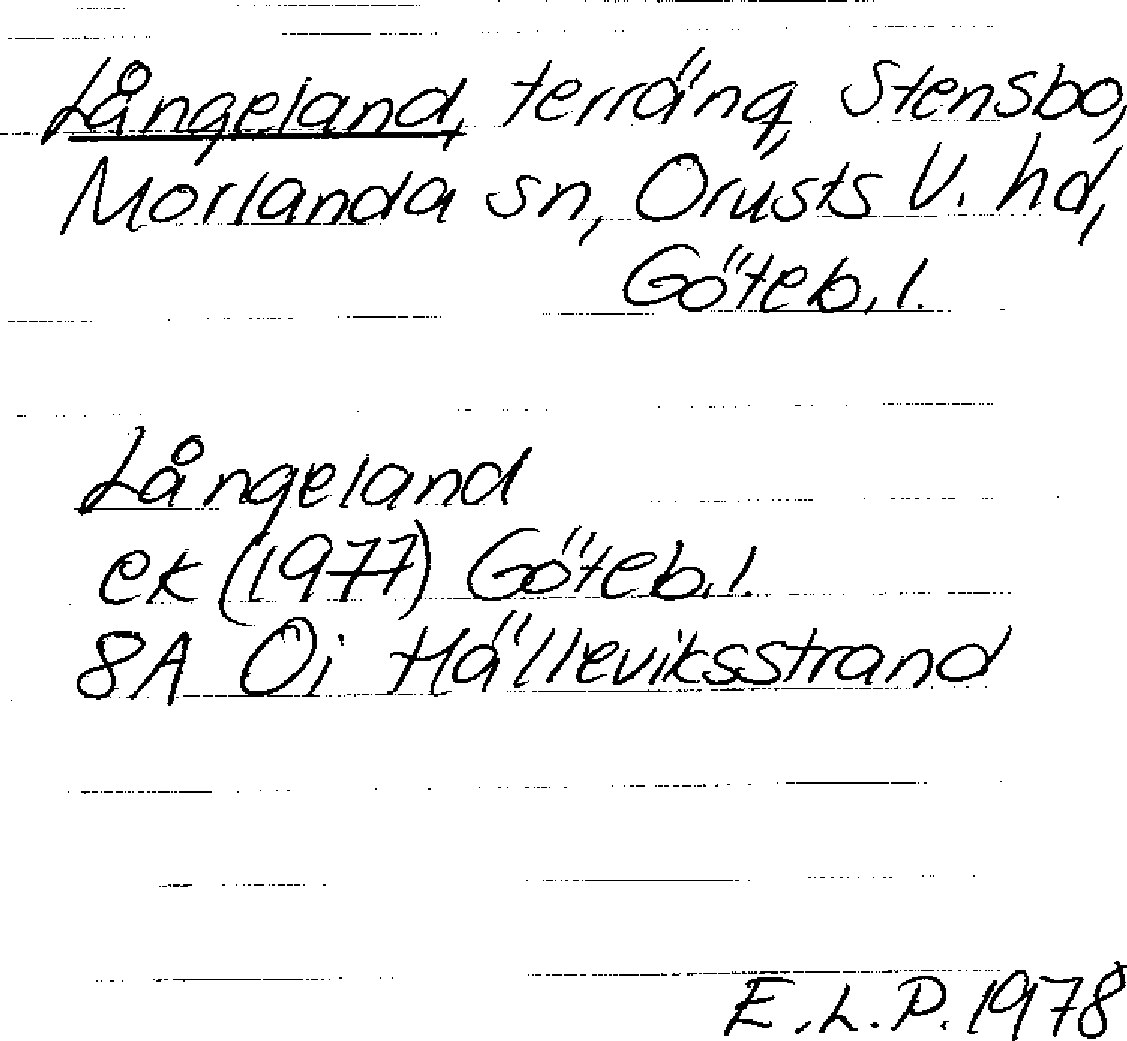 Långeland, terräng, Stensbo,
Morlanda sn, Orusts V. hd,
Göteb. l.
Långeland
ek (1977) Göteb. l.
8A Öi Hälleviksstrand
E.L.P. 1978